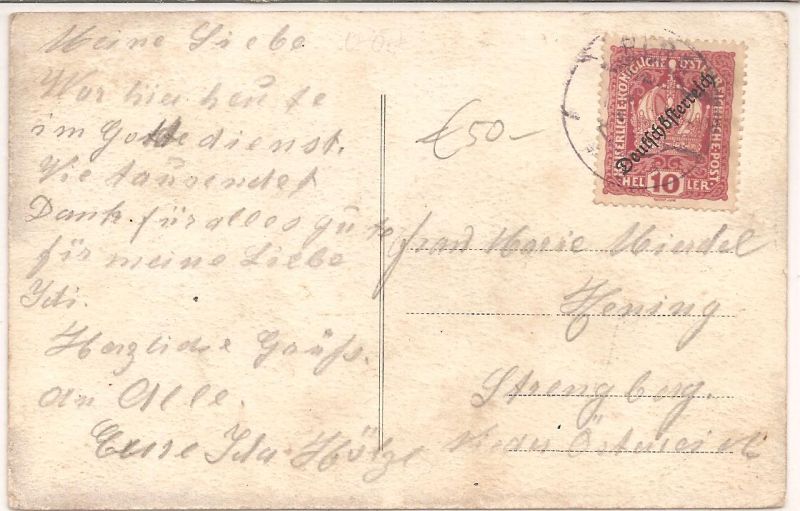 Meine Liebe
War hier heute
im Gottedienst.
Vie tausendet
Dank für alles gute
für meine Liebe
Idi.
Herzliche Grüße
an Alle.
Eure Ida
€50-
KAISERLICHE KÖNIGLICHE ÖSTERREICHISCHE POST
Deutschösterreich
HELLER
10
Frau Marie
Strengberg.
Nieder Österreich